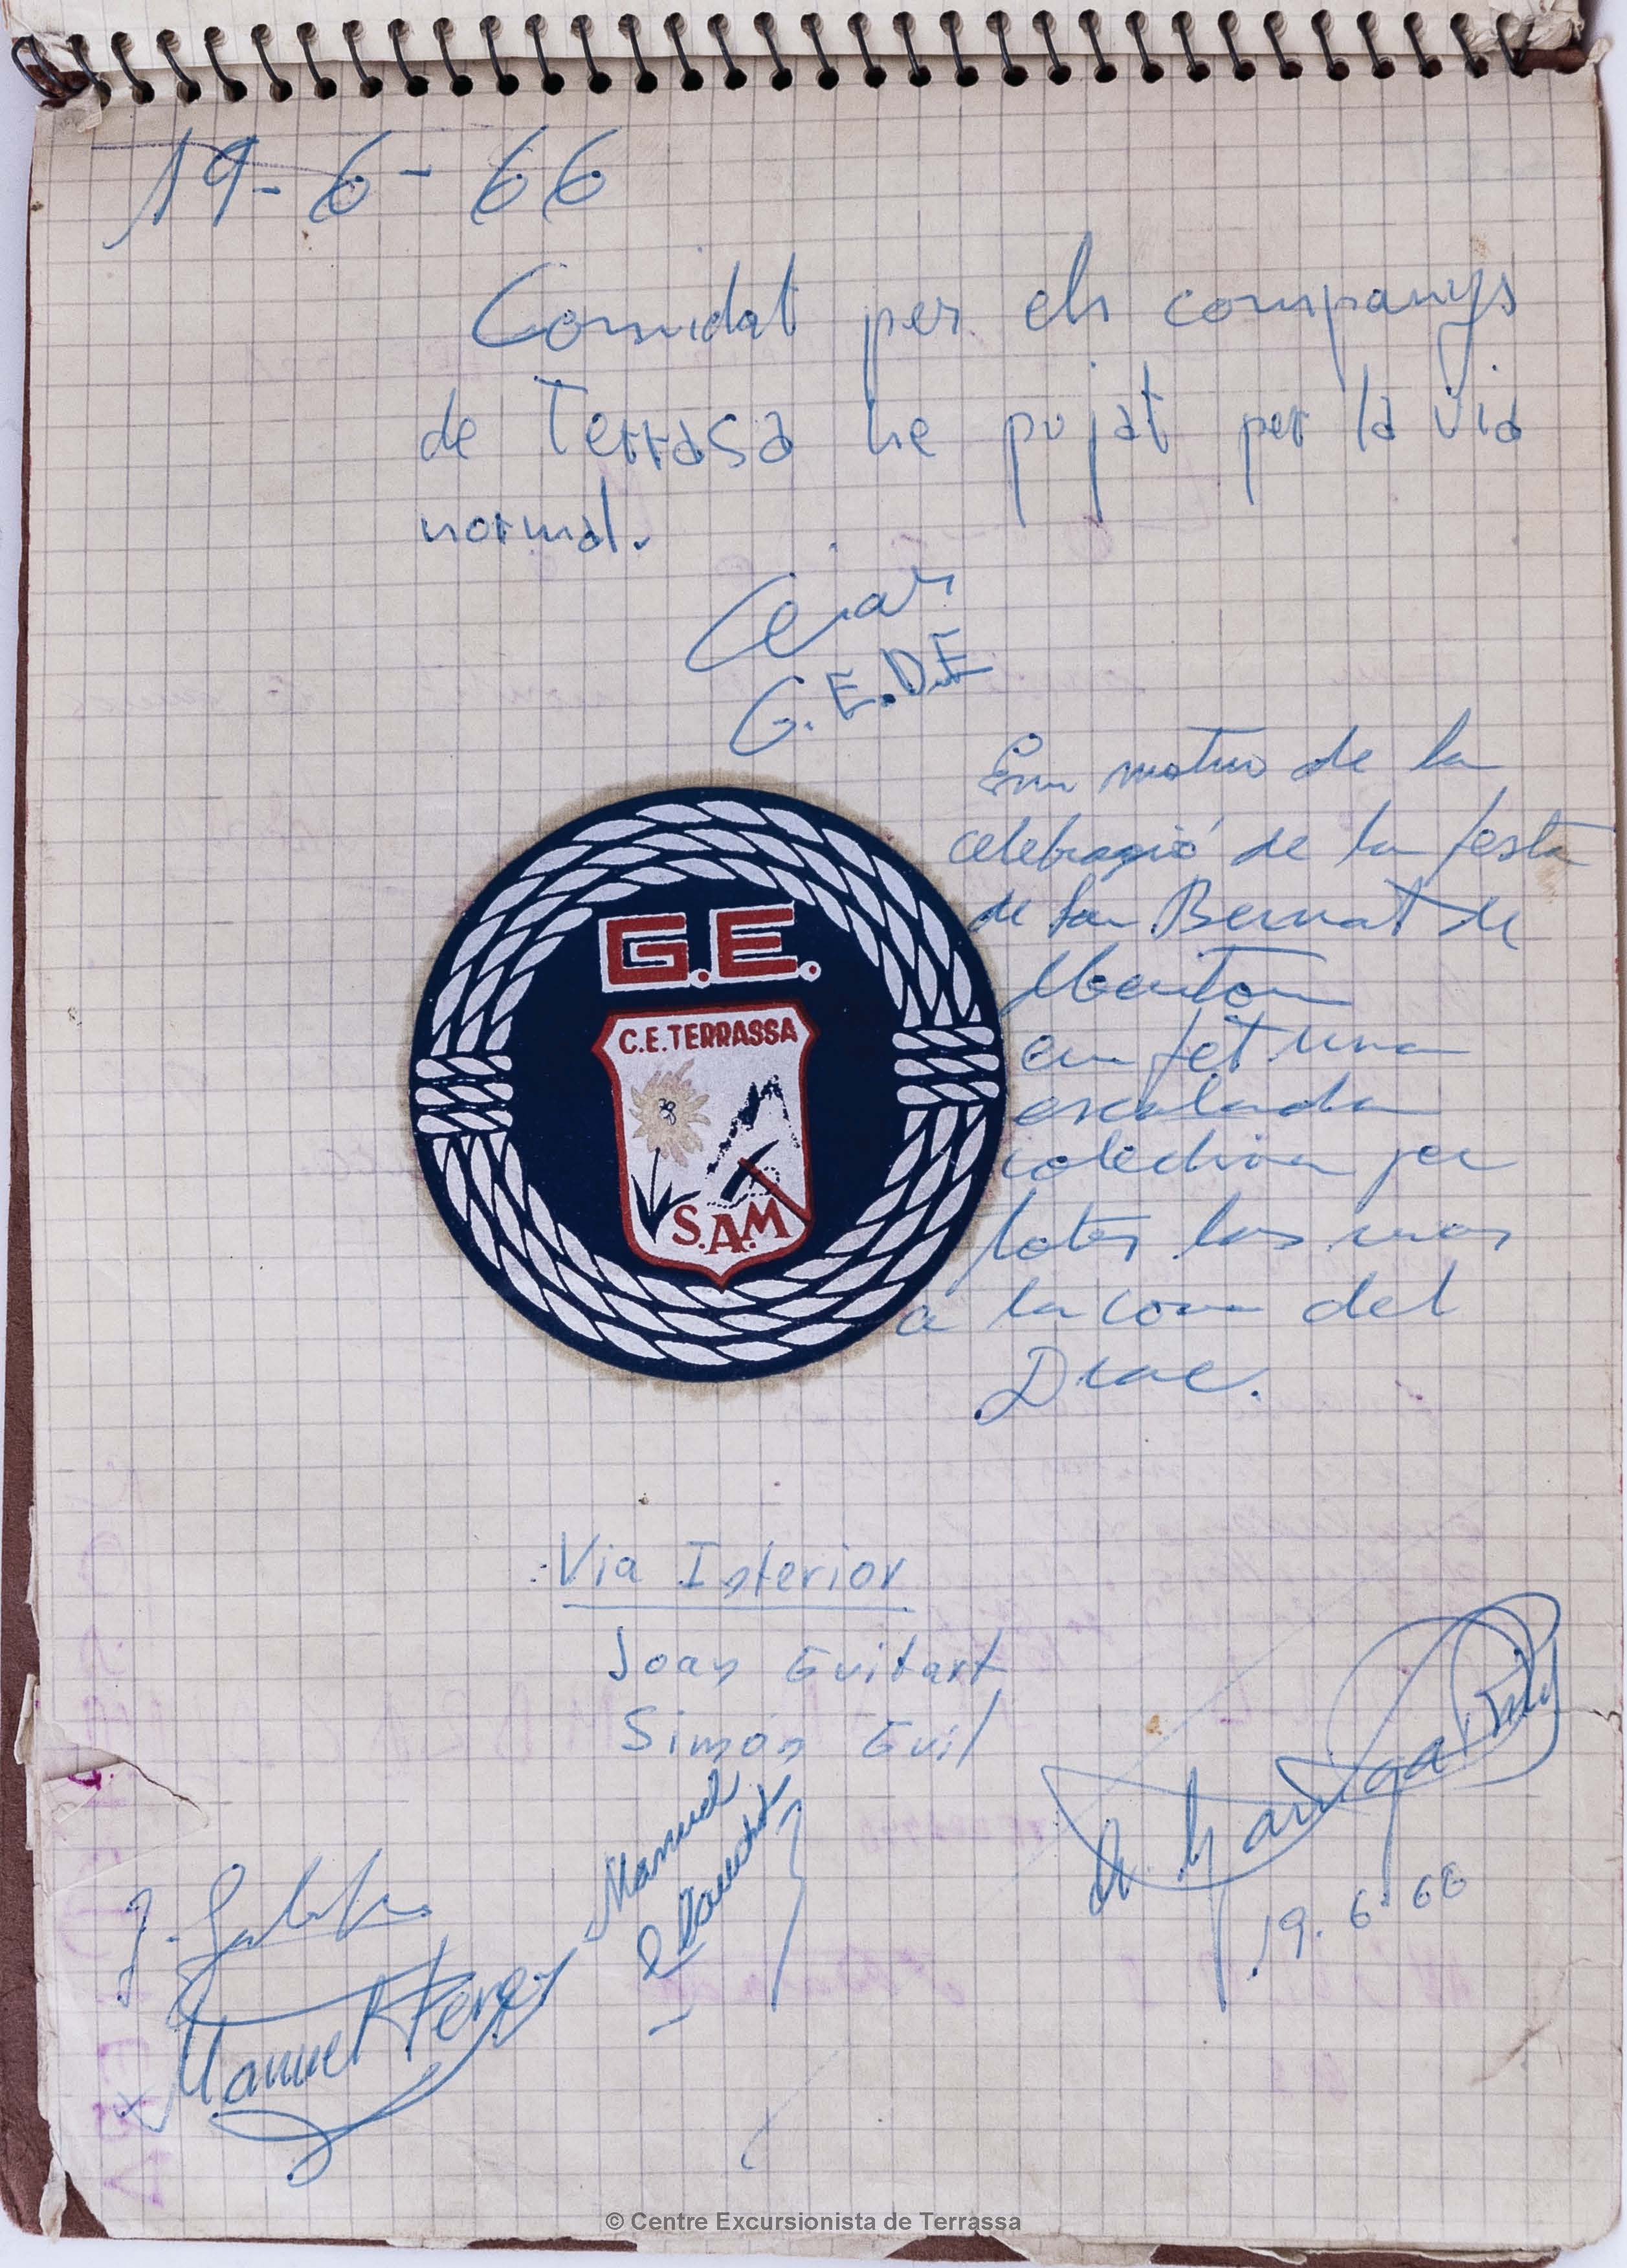 19-6-66
Convidat per els companys
de Terrasa he pujat per la via
normal.
Cesar
G.E.D.E
Em motiu de la
celebrasió de la festa
de San Bernat de
Menton
em fet una
escalada
colectiva per
totes las vias
a la cova del
Drac.
G.E.
C.E. TERRASSA
S.A.M
Via Interior
Joan Guitart
Simón Guil
Manuel
J.
Manuel Perez
A. Garriga
19.6.66
© Centre Excursionista de Terrassa